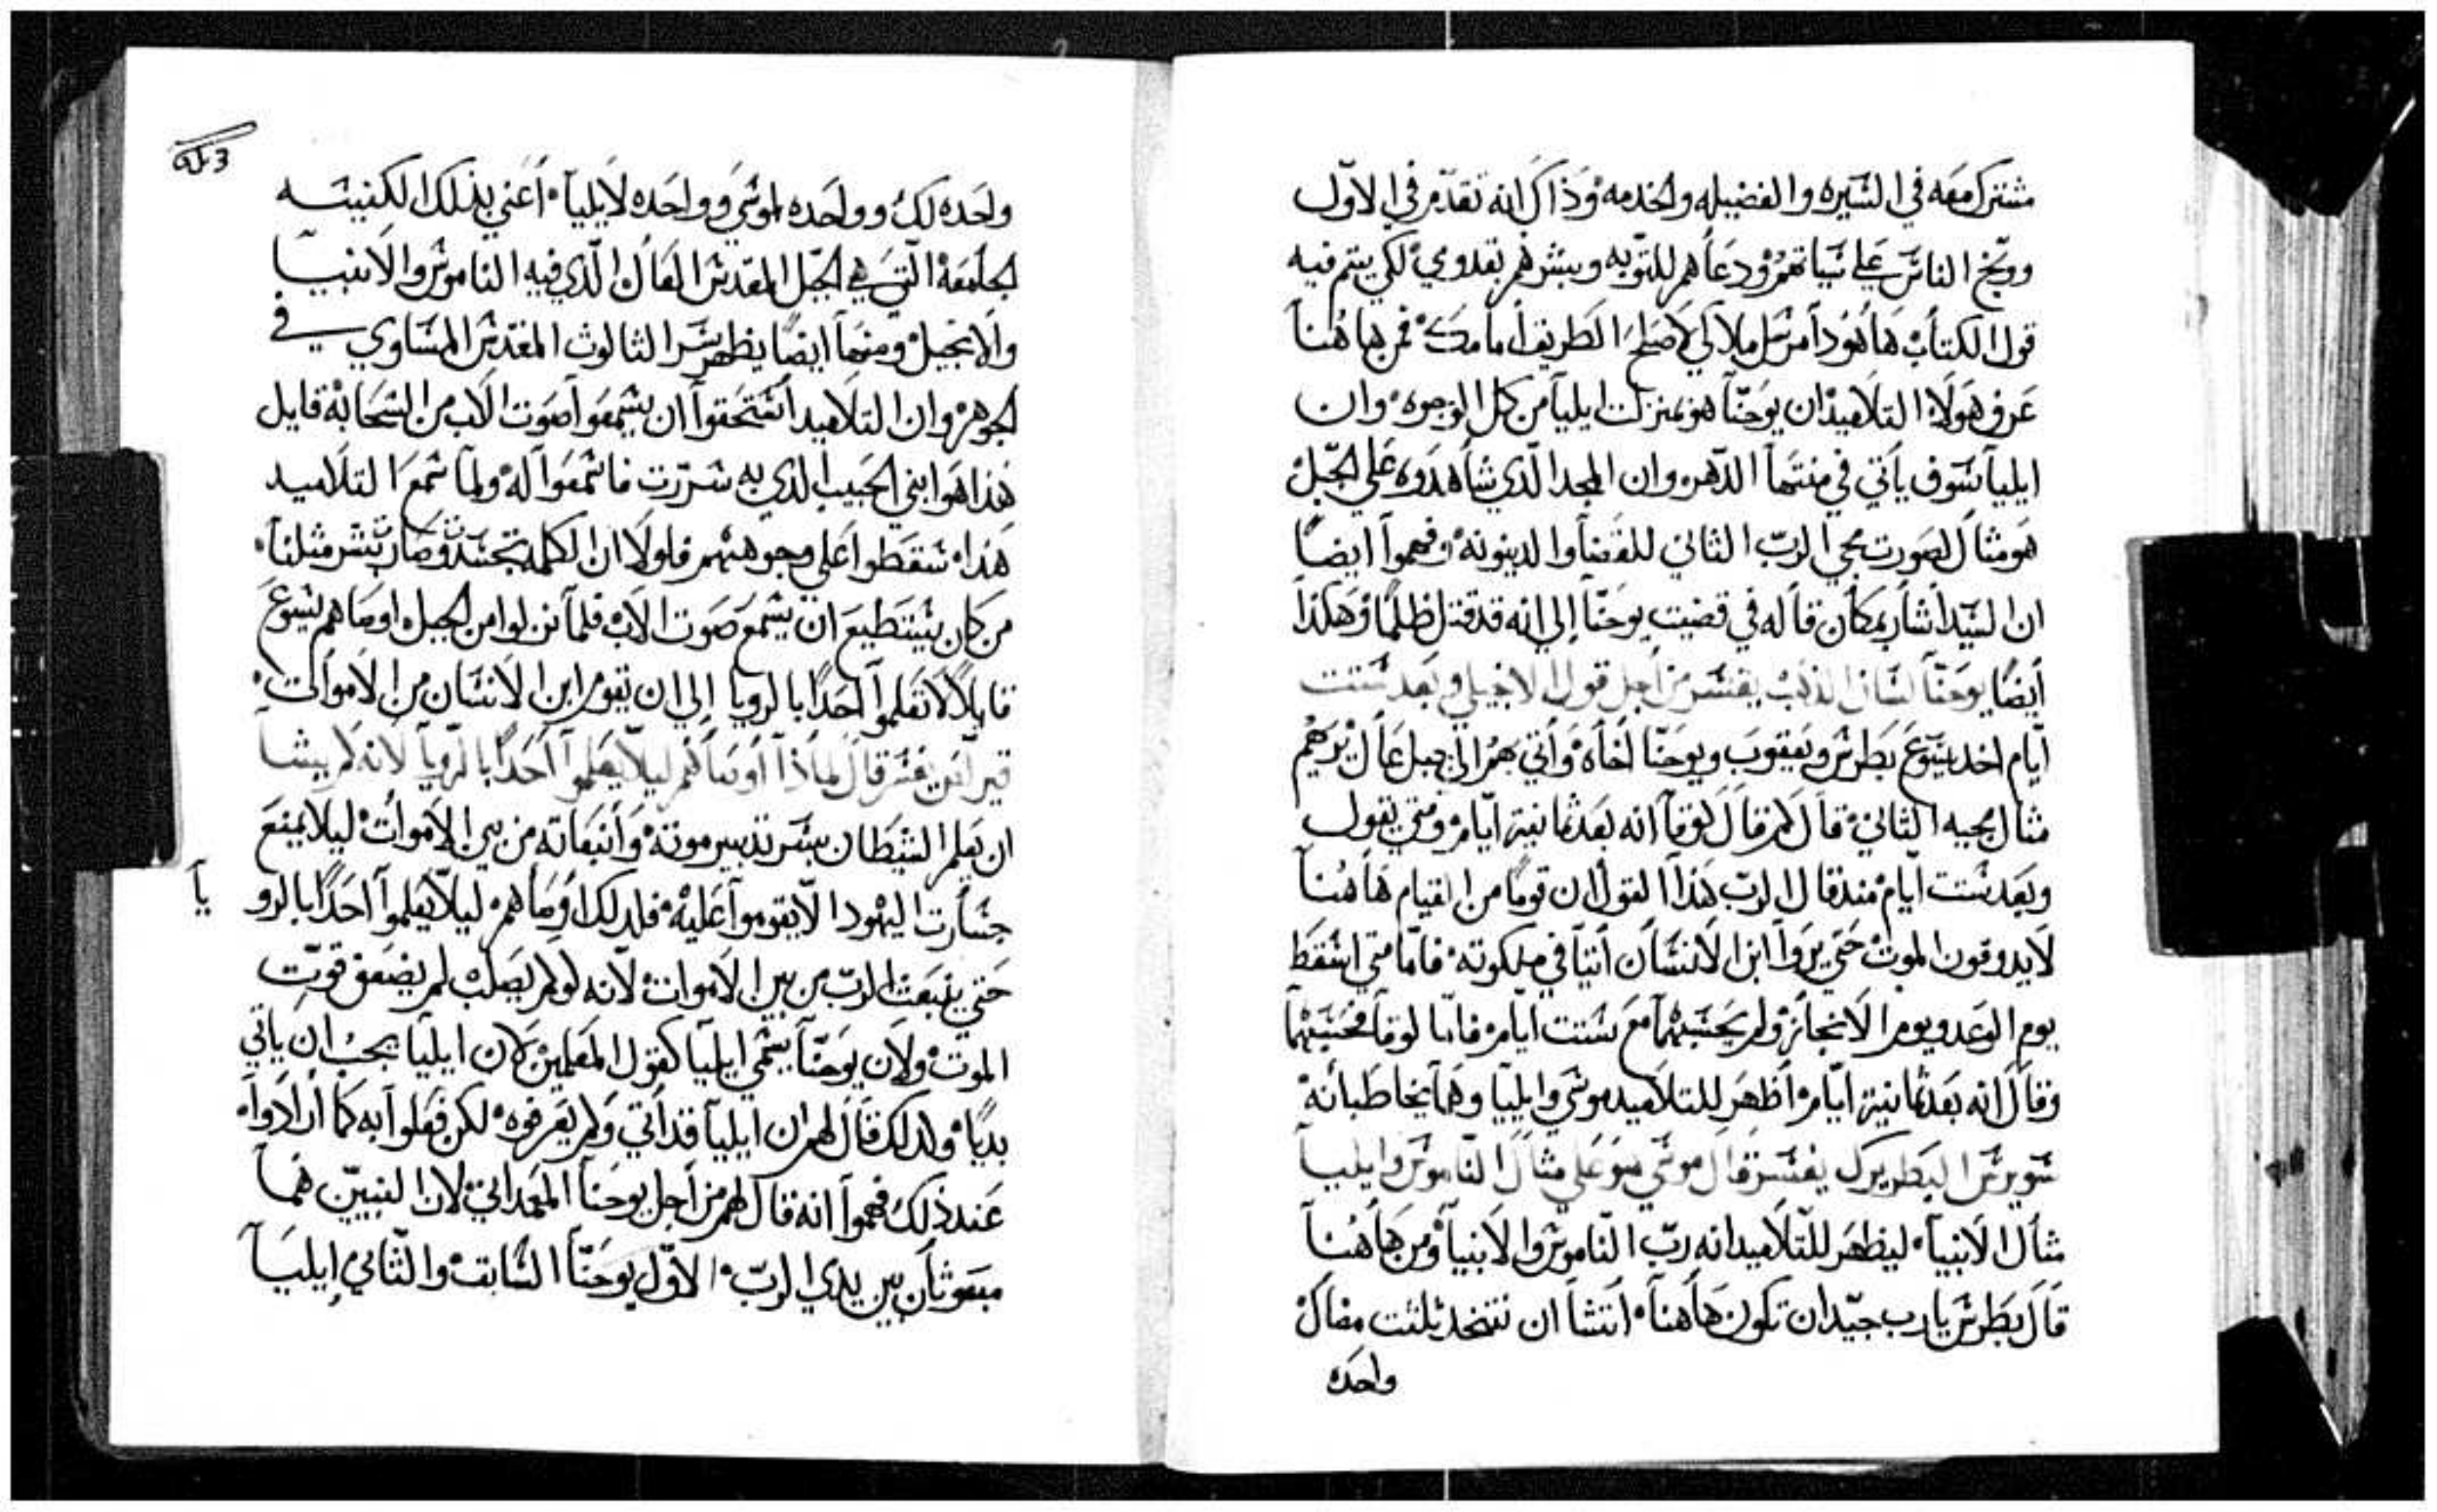 مشترك معه في السيره والفضيله والخدمه وذاك انه تقدم في الاول
ووبخ الناس علي سياتهم ودعاهم للتوبه وبشرهم بقدومي لكي يتم فيه
قول الكتاب هاهودا مرسل ملاكي لاصلح الطريق امامك فمن هاهنا
عرف هولاء التلاميذ ان يوحنا هو بمنزلت ايليا من كل الوجوه وان
ايليا سوف ياتي في منتها الدهر وان المجد الذي شاهدوه علي الجبل
هو مثال لصورت مجي الرب الثاني للقضا والدينونه وفهموا ايضا
ان السيد اشار بمكان قاله في قضيت يوحنا إلي انه قد قتل ظلما وهكذا
أيضا يوحنا لسان الذهب يفسر من اجل قول الانجيل وبعد ستت
أيام اخد يسوع بطرس ويعقوب ويوحنا اخاه وأتي بهم الي جبل عال ليريهم
مثال مجيه الثاني قال كم قال لوقا انه بعد ثمانية ايام ومتي يقول
وبعد ستت ايام مند قال الرب هذا القول ان قوما من القيام هاهنا
لا يدوقون الموت حتي يروا ابن الانسان أتيا في ملكوته فاما متي اسقط
يوم الوعد ويوم الانجاز ولم يحسبهما مع ستت ايام فاما لوقا فحسبهما
وقال انه بعد ثمانية ايام أظهر للتلاميد موسي وايليا وهما يخاطبانه
سويرس البطريرك يفسر قال موسي هو علي مثال الناموس وايليا
مثال الانبيا ليظهر للتلاميد انه رب الناموس والانبيا ومن هاهنا
قال بطرس يارب جيد ان نكون هاهنا أتشا ان نتخد تلتت مضال
واحده
واحده لك وواحده لموسي وواحده لايليا أعني بذلك الكنيسه
الجامعه التي هي الجبل المقدس العال الذي فيه الناموس والانبيا
والانجيل ومنها ايضا يظهر سر الثالوث المقدس المساوي في
الجوهر وان التلاميد استحقوا ان يسمعوا صوت الاب من السحابه قايل
هذا هو ابني الحبيب الذي به سررت فاسمعوا له ولما سمع التلاميد
هذا سقطوا علي وجوههم فلولا ان الكلمه تجسدت وصارت بشر مثلنا
من كان يستطيع ان يسمع صوت الاب فلما نزلوا من الجبل اوصاهم يسوع
قايلا لا تعلموا احدا بالرويا إلي ان يقوم ابن الانسان من الاموات
يفسر قال لماذا أوصاهم ليلا يعلموا أحدا بالرويا لانه لم يشا
ان يعلم الشيطان بسر تدبير موته وأنبعاته من بين الاموات ليلا يمنع
جسارت اليهود الا يقوموا عليه فلدلك اوصاهم ليلا يعلموا احدا بالرو يا
حتي ينبعث الرب من بين الاموات لانه لو لم يصلب لم يضعف قوت
الموت ولان يوحنا يسمي ايليا كقول المعلمين لان ايليا يجب ان ياتي
بديا ولدلك قال لهم ان ايليا قد أتي ولم يعرفوه لكن فعلوا به كما ارادوا
عند ذلك فهموا انه قال لهم من أجل يوحنا المعمداني لان النبيين هما
مبعوثان بين يدي الرب الاول يوحنا السابق والثاني إيليا